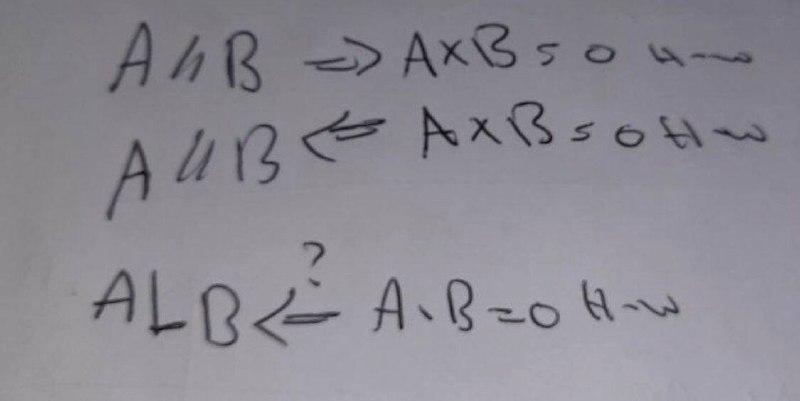 A // B ⇒ A×B = 0 H-w
A // B ⇐ A×B = 0 H-w
?
A ⊥ B ⇐ A·B = 0 H-w